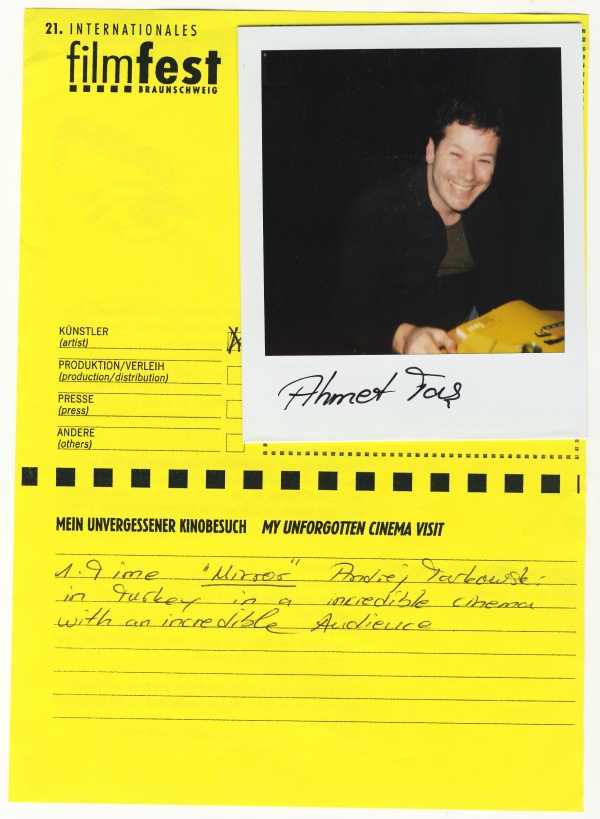 21. INTERNATIONALES
filmfest
BRAUNSCHWEIG
Ahmet Taş
KÜNSTLER
(artist)
PRODUKTION/VERLEIH
(production/distribution)
PRESSE
(press)
ANDERE
(others)
MEIN UNVERGESSENER KINOBESUCH MY UNFORGOTTEN CINEMA VISIT
1. Time "Mirror" Andrej Tarkowski
in Turkey in a incredible cinema
with an incredible Audience